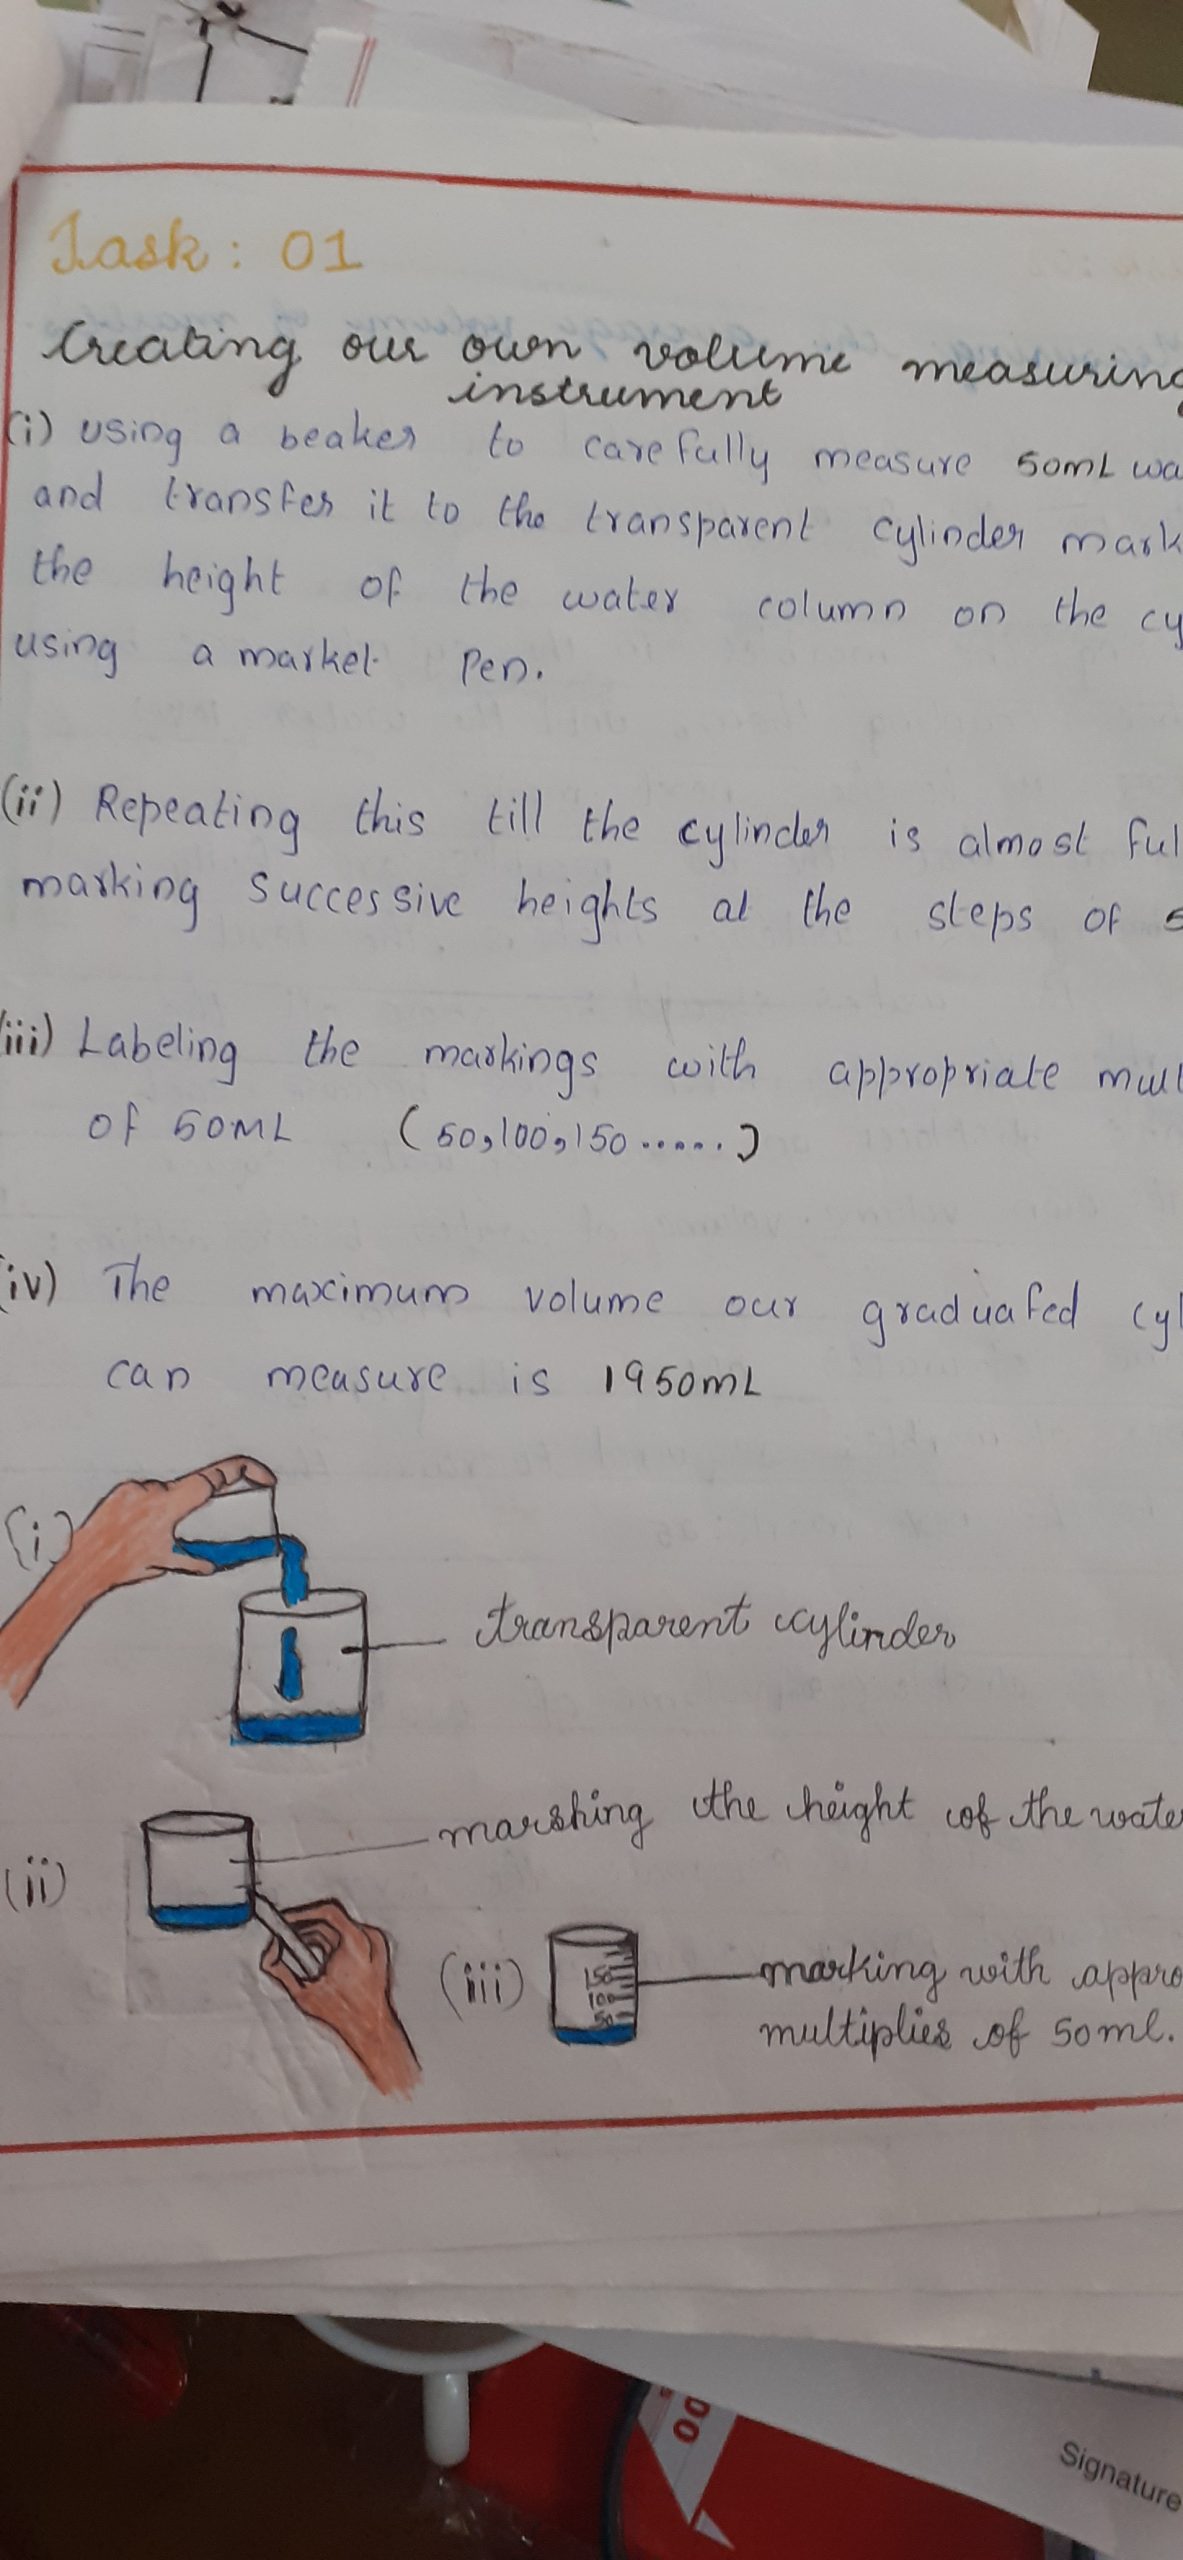 Task : 01
Creating our own volume measuring
instrument
(i) using a beaker to carefully measure 50mL wa
and transfer it to the transparent cylinder mark
the height of the water column on the cy
using a market pen.
(ii) Repeating this till the cylinder is almost ful
marking successive heights at the steps of 5
(iii) Labeling the markings with appropriate mult
of 50mL (50,100,150......)
(iv) The maximum volume our graduated cyl
can measure is 1950mL
(i)
transparent cylinder
marshing the height of the wate
(ii)
(iii)
150
100
50
marking with appro
multiplies of 50ml.
00
Signature